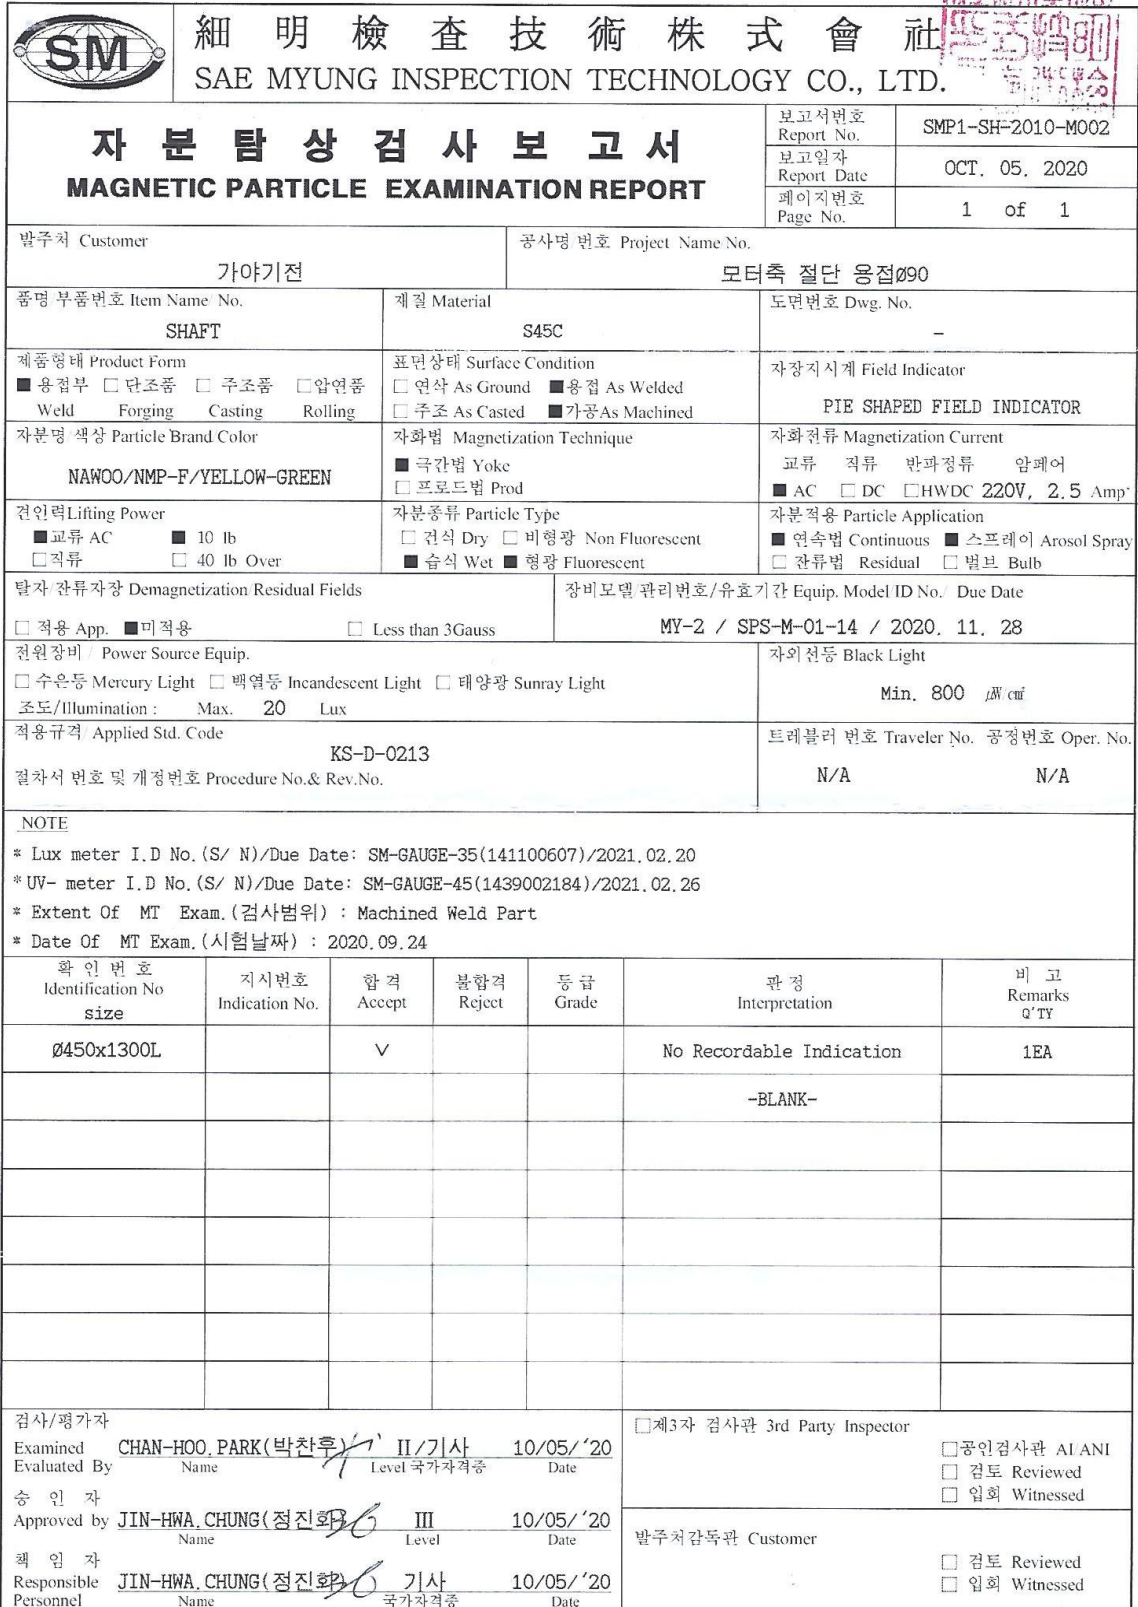 SM
細明檢査技術株式會社
SAE MYUNG INSPECTION TECHNOLOGY CO., LTD.
자분탐상검사보고서
MAGNETIC PARTICLE EXAMINATION REPORT
보고서번호
Report No.
SMP1-SH-2010-M002
보고일자
Report Date
OCT. 05. 2020
페이지번호
Page No.
1 of 1
발주처 Customer
가야기전
공사명 번호 Project Name/No.
모터축 절단 용접Ø90
품명 부품번호 Item Name/ No.
SHAFT
재질 Material
S45C
도면번호 Dwg. No.
-
제품형태 Product Form
■ 용접부 □ 단조품 □ 주조품 □압연품
Weld Forging Casting Rolling
표면상태 Surface Condition
□ 연삭 As Ground ■용접 As Welded
□ 주조 As Casted ■가공As Machined
자장지시계 Field Indicator
PIE SHAPED FIELD INDICATOR
자분명 색상 Particle Brand Color
NAWOO/NMP-F/YELLOW-GREEN
자화법 Magnetization Technique
■ 극간법 Yoke
□ 프로드법 Prod
자화전류 Magnetization Current
교류 직류 반파정류 암페어
■ AC □ DC □HWDC 220V, 2.5 Amp
견인력Lifting Power
■교류 AC ■ 10 lb
□직류 □ 40 lb Over
자분종류 Particle Type
□ 건식 Dry □ 비형광 Non Fluorescent
■ 습식 Wet ■ 형광 Fluorescent
자분적용 Particle Application
■ 연속법 Continuous ■ 스프레이 Arosol Spray
□ 잔류법 Residual □ 벌브 Bulb
탈자/잔류자장 Demagnetization/Residual Fields
□ 적용 App. ■미적용 □ Less than 3Gauss
장비모델/관리번호/유효기간 Equip. Model/ID No./ Due Date
MY-2 / SPS-M-01-14 / 2020. 11. 28
전원장비 / Power Source Equip.
□ 수은등 Mercury Light □ 백열등 Incandescent Light □ 태양광 Sunray Light
조도/Illumination : Max. 20 Lux
자외선등 Black Light
Min. 800 ㎼/㎠
적용규격/ Applied Std. Code
KS-D-0213
절차서 번호 및 개정번호 Procedure No.& Rev.No.
트레블러 번호 Traveler No. 공정번호 Oper. No.
N/A N/A
NOTE
* Lux meter I.D No.(S/ N)/Due Date: SM-GAUGE-35(141100607)/2021.02.20
* UV- meter I.D No.(S/ N)/Due Date: SM-GAUGE-45(1439002184)/2021.02.26
* Extent Of MT Exam.(검사범위) : Machined Weld Part
* Date Of MT Exam.(시험날짜) : 2020.09.24
확인번호
Identification No
size
지시번호
Indication No.
합격
Accept
불합격
Reject
등급
Grade
판정
Interpretation
비고
Remarks
Q'TY
Ø450x1300L V No Recordable Indication 1EA
-BLANK-
검사/평가자
Examined
Evaluated By
CHAN-HOO.PARK(박찬후) II/기사 10/05/'20
Name Level 국가자격증 Date
승인자
Approved by JIN-HWA.CHUNG(정진화) III 10/05/'20
Name Level Date
책임자
Responsible
Personnel
JIN-HWA.CHUNG(정진화) 기사 10/05/'20
Name 국가자격증 Date
□제3자 검사관 3rd Party Inspector
□공인검사관 AI/ANI
□ 검토 Reviewed
□ 입회 Witnessed
발주처감독관 Customer
□ 검토 Reviewed
□ 입회 Witnessed